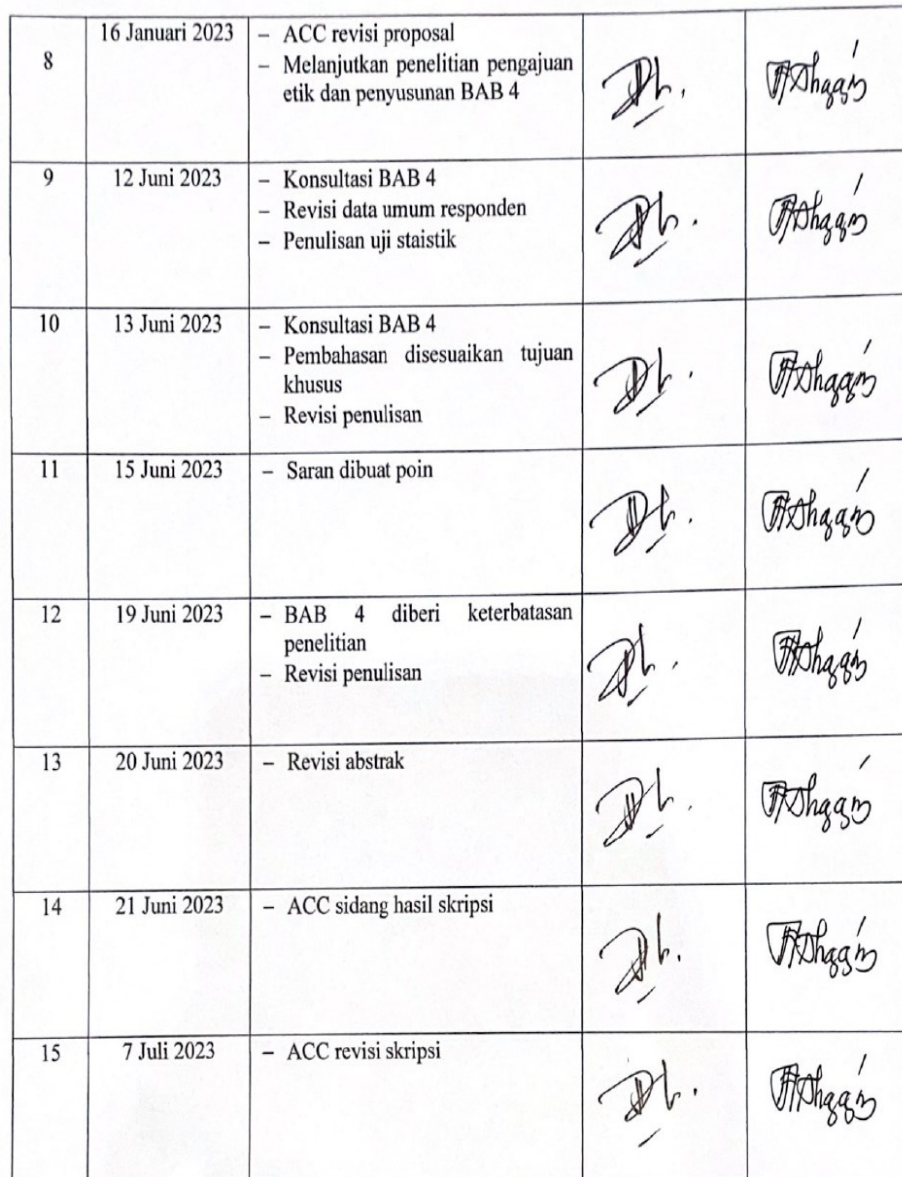 8 16 Januari 2023 – ACC revisi proposal
– Melanjutkan penelitian pengajuan
etik dan penyusunan BAB 4
9 12 Juni 2023 – Konsultasi BAB 4
– Revisi data umum responden
– Penulisan uji staistik
10 13 Juni 2023 – Konsultasi BAB 4
– Pembahasan disesuaikan tujuan
khusus
– Revisi penulisan
11 15 Juni 2023 – Saran dibuat poin
12 19 Juni 2023 – BAB 4 diberi keterbatasan
penelitian
– Revisi penulisan
13 20 Juni 2023 – Revisi abstrak
14 21 Juni 2023 – ACC sidang hasil skripsi
15 7 Juli 2023 – ACC revisi skripsi